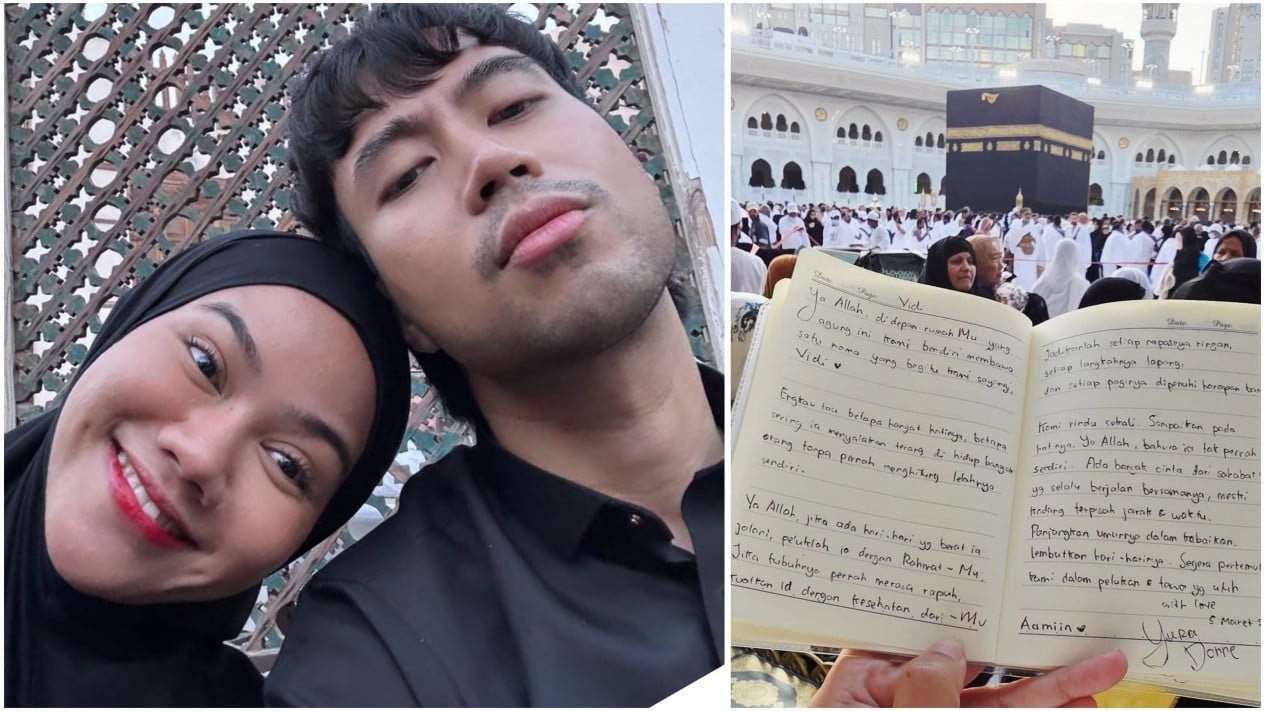 Date Page
Vidi
Ya Allah, di depan rumah Mu yang
agung ini kami berdiri membawa
satu nama yang begitu kami sayangi,
Vidi ♥
Engkau tau betapa hangat hatinya, betapa
sering ia menyalakan terang di hidup banyak
orang tanpa pernah menghitung lelahnya
sendiri.
Ya Allah, jika ada hari-hari yg berat ia
jalani, peluklah ia dengan Rahmat-Mu,
Jika tubuhnya pernah merasa rapuh,
kuatkan ia dengan kesehatan dari-Mu
Date Page
Jadikanlah setiap napasnya ringan,
setiap langkahnya lapang,
dan setiap paginya dipenuhi harapan
Kami rindu sekali. Sampaikan pada
hatinya, Ya Allah, bahwa ia tak pernah
sendiri. Ada banyak cinta dari sahabat
yg selalu berjalan bersamanya, meski
kadang terpisah jarak & waktu.
Panjangkan umurnya dalam kebaikan.
Lembutkan hari-harinya. Segera
kami dalam pelukan & tawa yg utuh
with love
5 Maret
Aamiin ♥
Yura